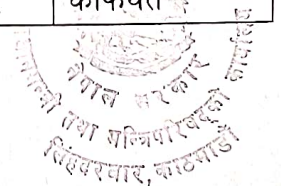 काकवत
नेपाल सरकार
प्रधानमन्त्री तथा मन्त्रिपरिषद्को कार्यालय
सिंहदरबार, काठमाडौं